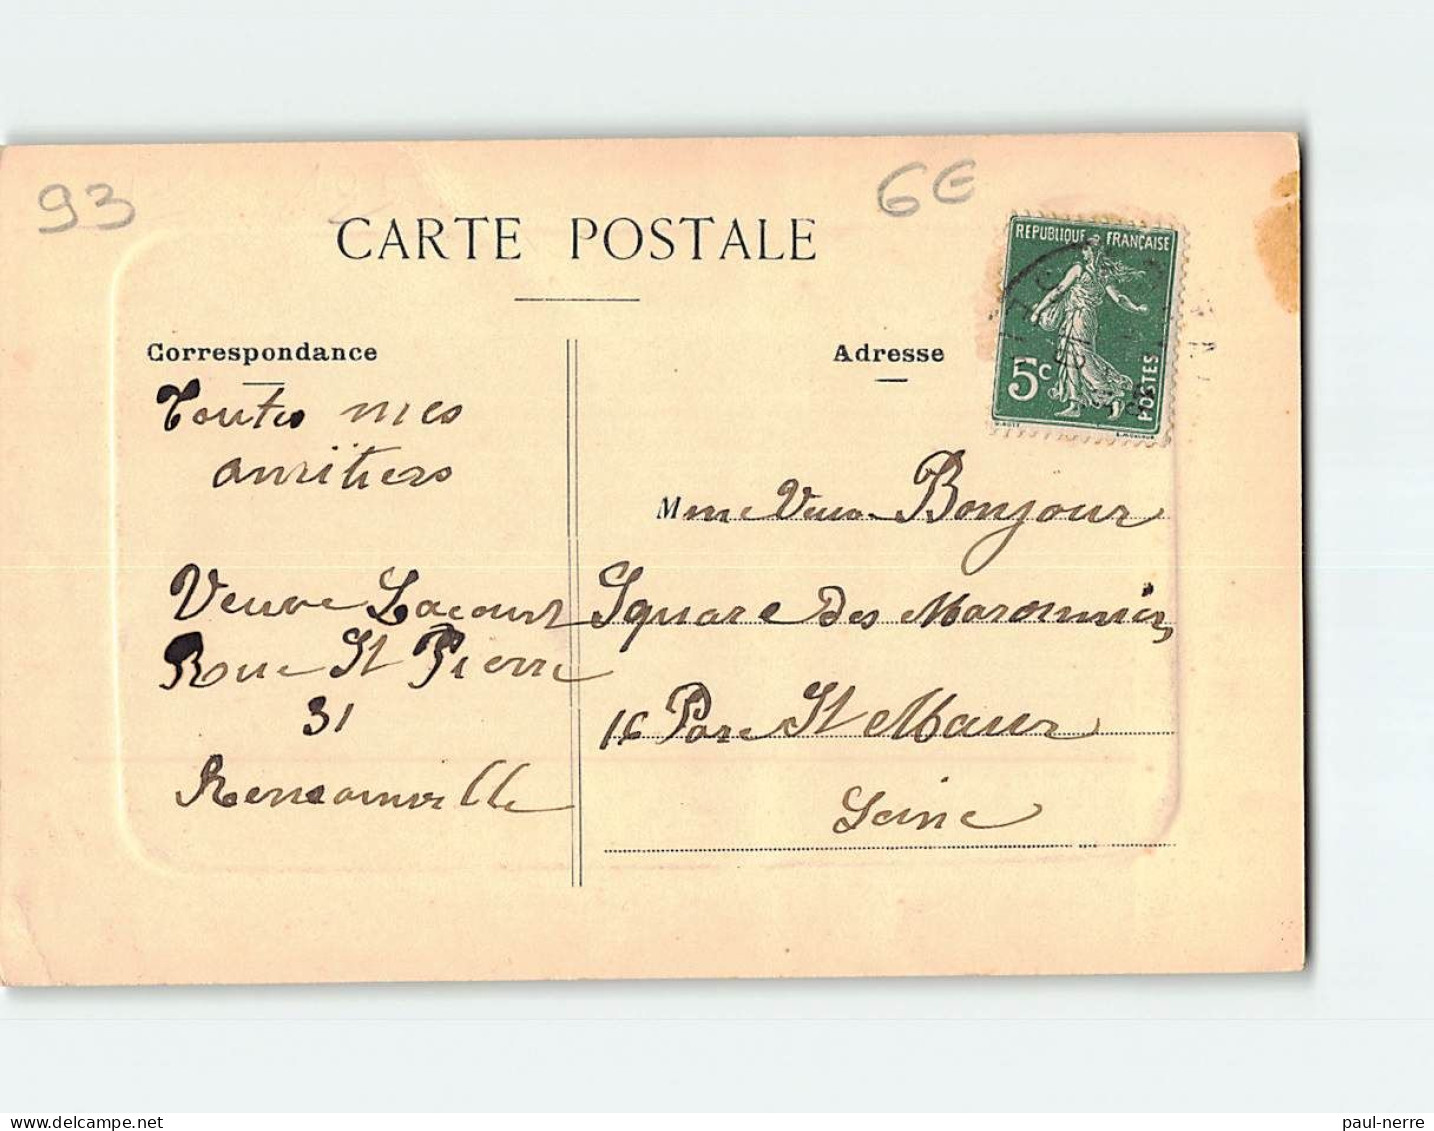 93
6€
CARTE POSTALE
REPUBLIQUE FRANÇAISE
5c
POSTES
Correspondance
Adresse
Toutes mes
amitiers
Veuve Lacourt
Rue St Pierre
31
Mme Veuve Bonjour
Square des Maronniers
16 Parc St Maur
Seine
paul-nerre